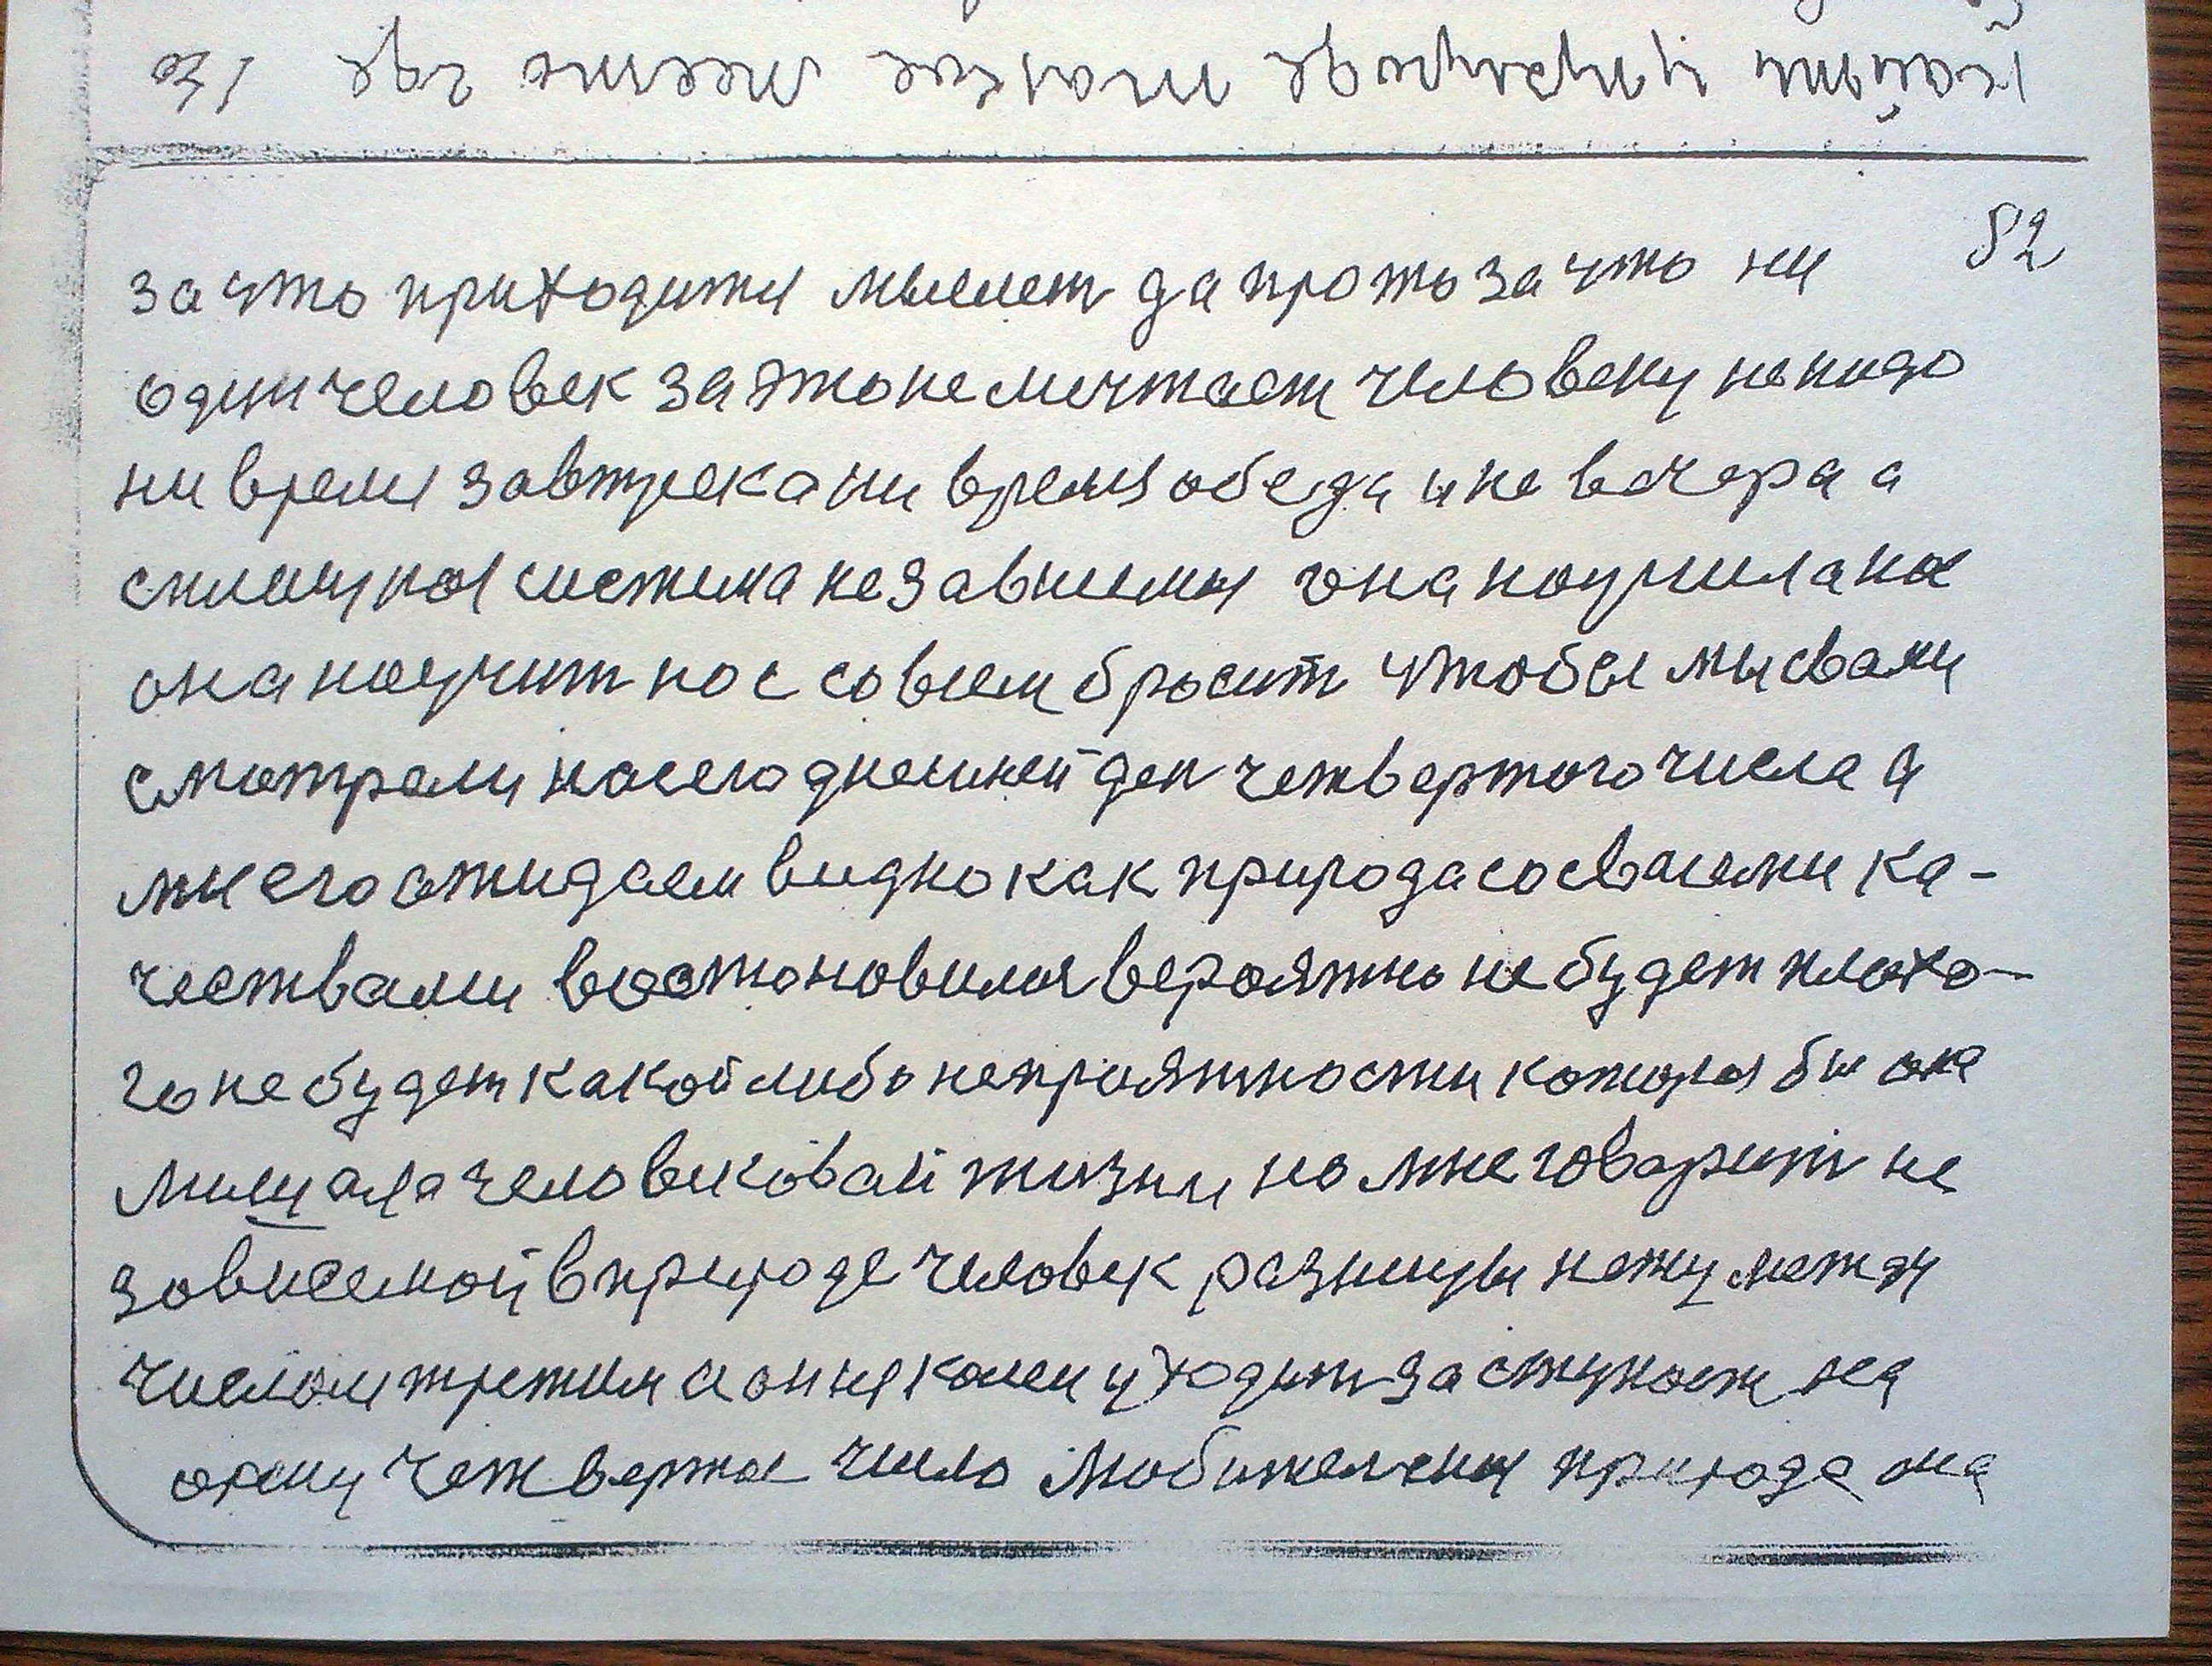 такие места где
82
за что приходится мыслет да про то за что ни
один человек за это не мечтает человеку не надо
ни время завтрека ни время обеда и не вечера а
система независимая она научила нас
она научит нас совсем бросит чтобы мы свами
сматрели на сегоднешней ден четвертого числа а
мы его ожидаем видно как природа со сваеми ка-
чествами востоновился вероятно не будет плохо-
го не будет какой либо неприятности которая бы она
мишала человиковай жизни но мне говарит не
зависемой в природе человек разницы нежу между
числом третим а они уходит заступает на
арену четвертое число природа она